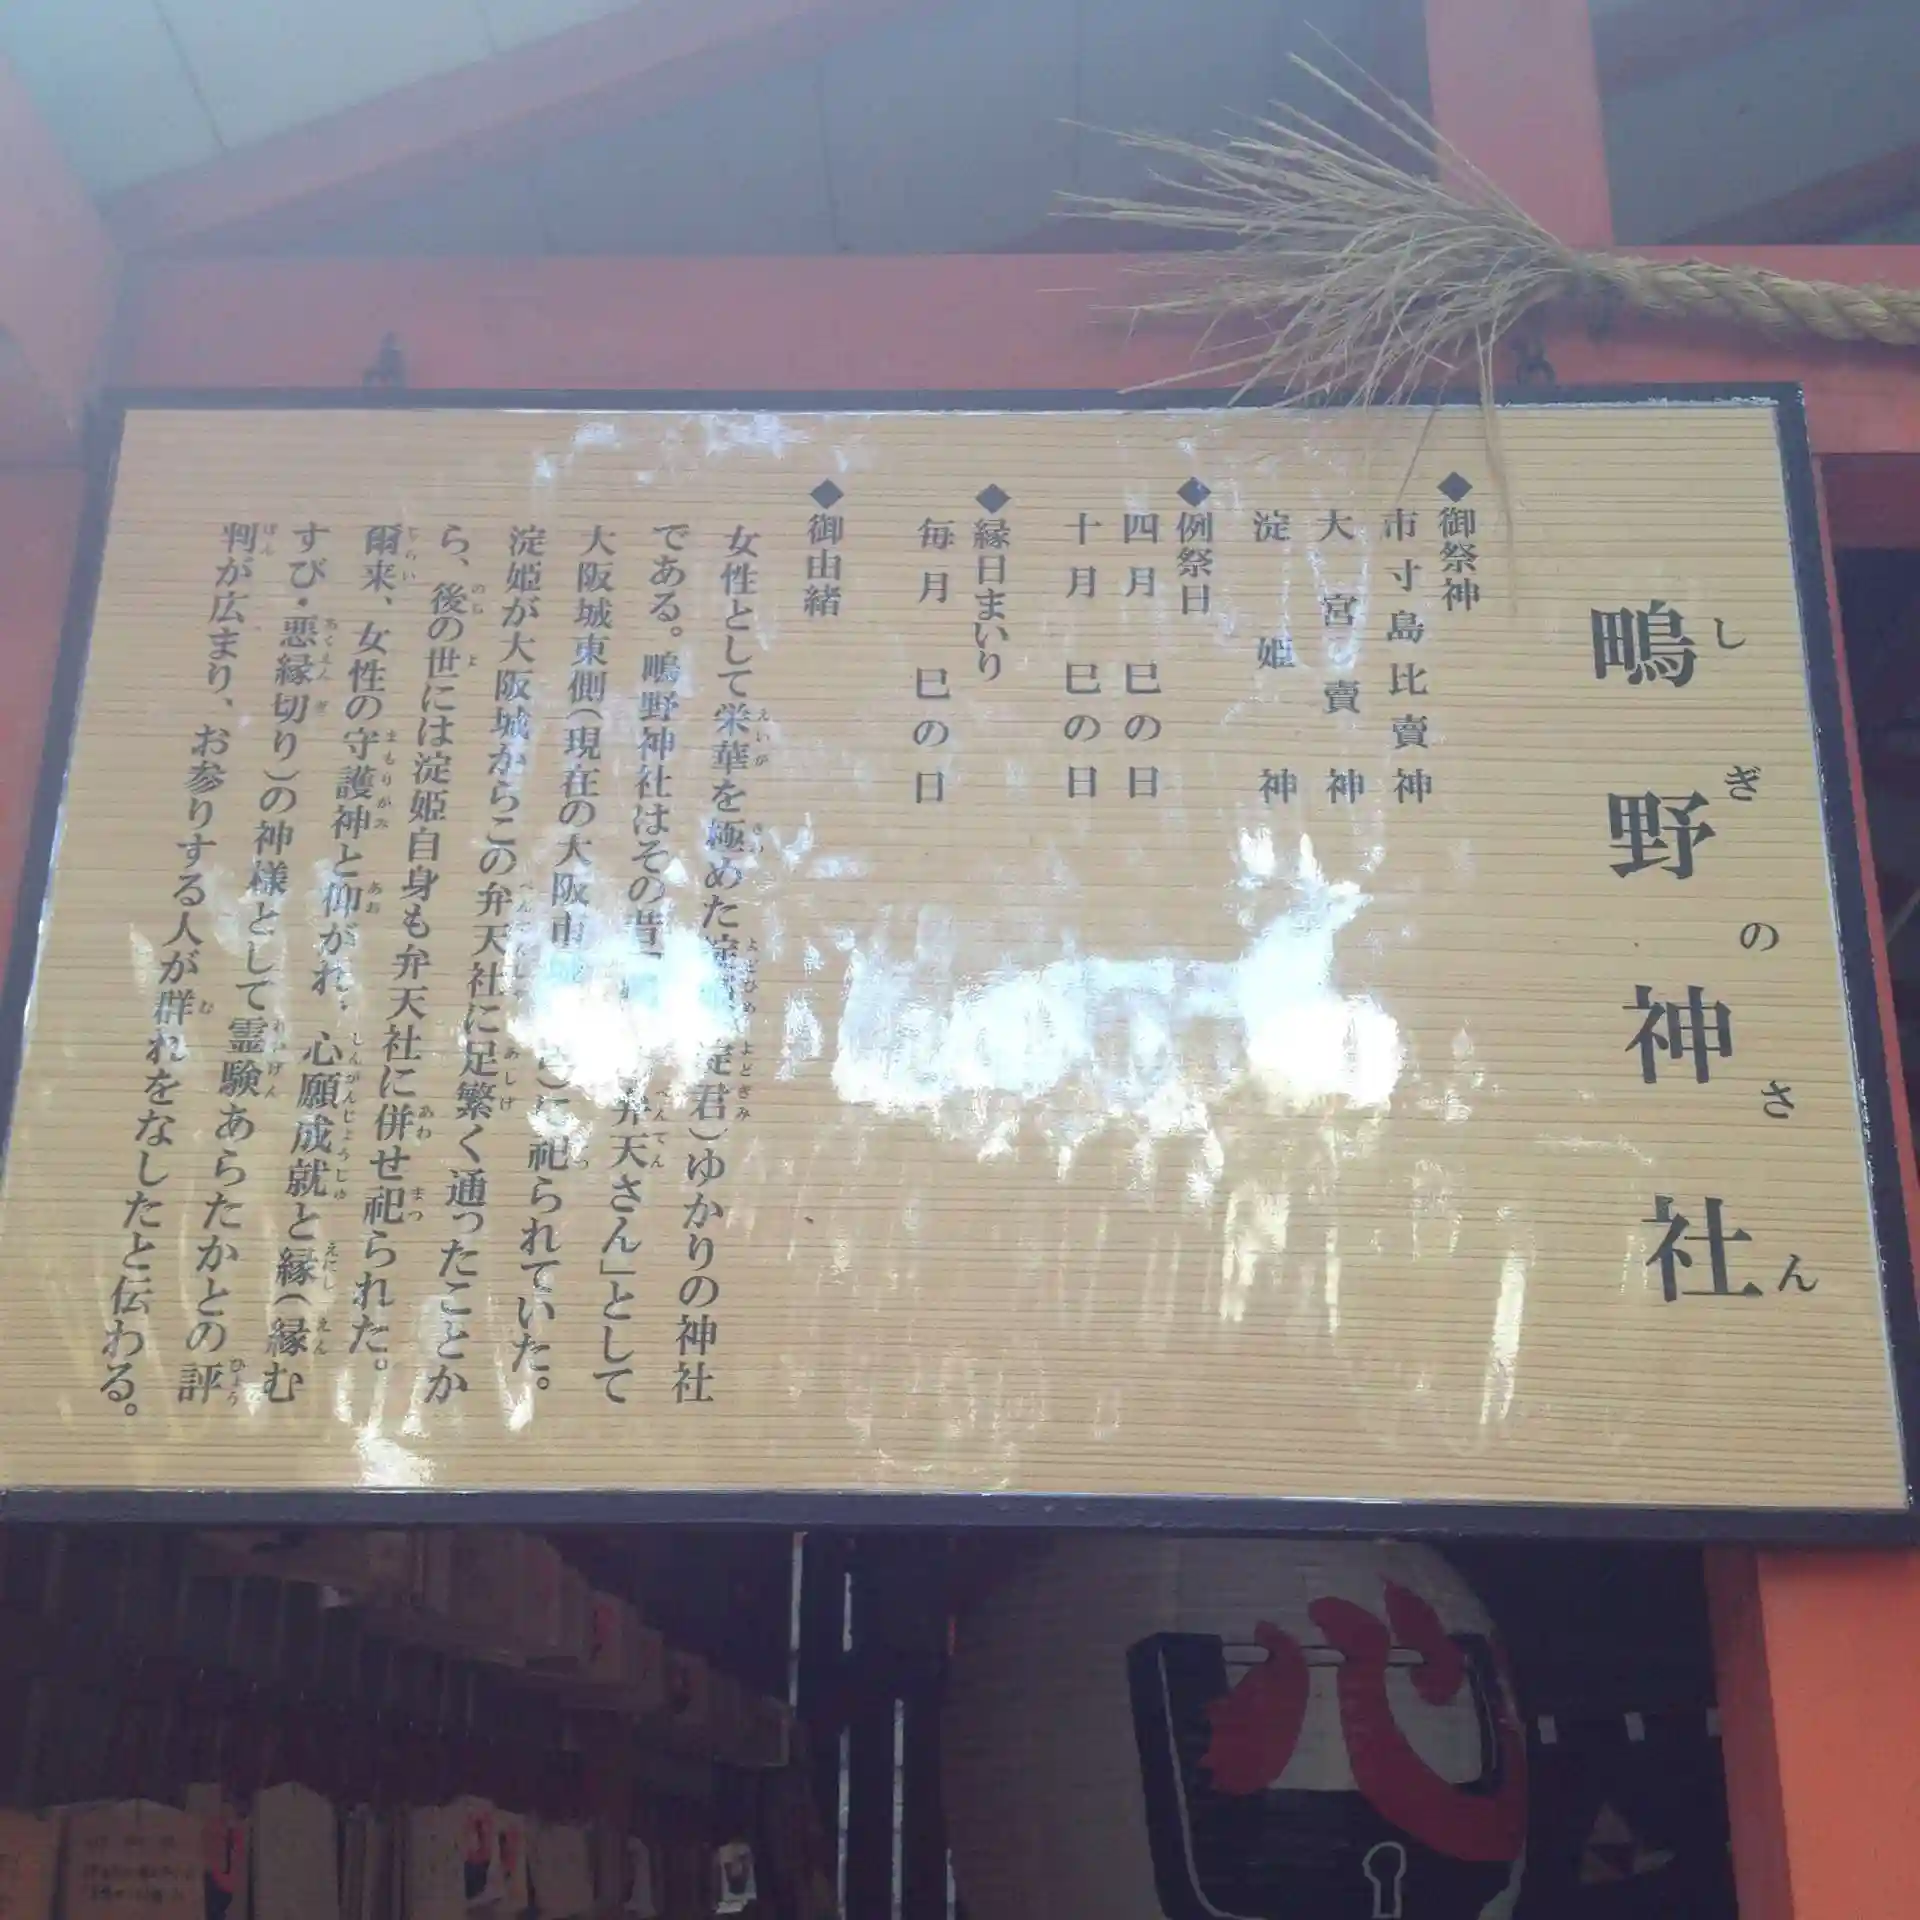 鴫野神社
しぎのさん
◆御祭神
市寸島比賣神
大宮賣神
淀姫神
◆例祭日
四月 巳の日
十月 巳の日
◆縁日まいり
毎月 巳の日
◆御由緒
女性として栄華を極めた 君)ゆかりの神社
である。鴫野神社はその昔 弁天さん」として
大阪城東側(現在の大阪市 に祀られていた。
淀姫が大阪城からこの弁天社に足繁く通ったことか
ら、後の世には淀姫自身も弁天社に併せ祀られた。
爾来、女性の守護神と仰がれ、心願成就と縁(縁む
すび・悪縁切り)の神様として霊験あらたかとの評
判が広まり、お参りする人が群れをなしたと伝わる。
心